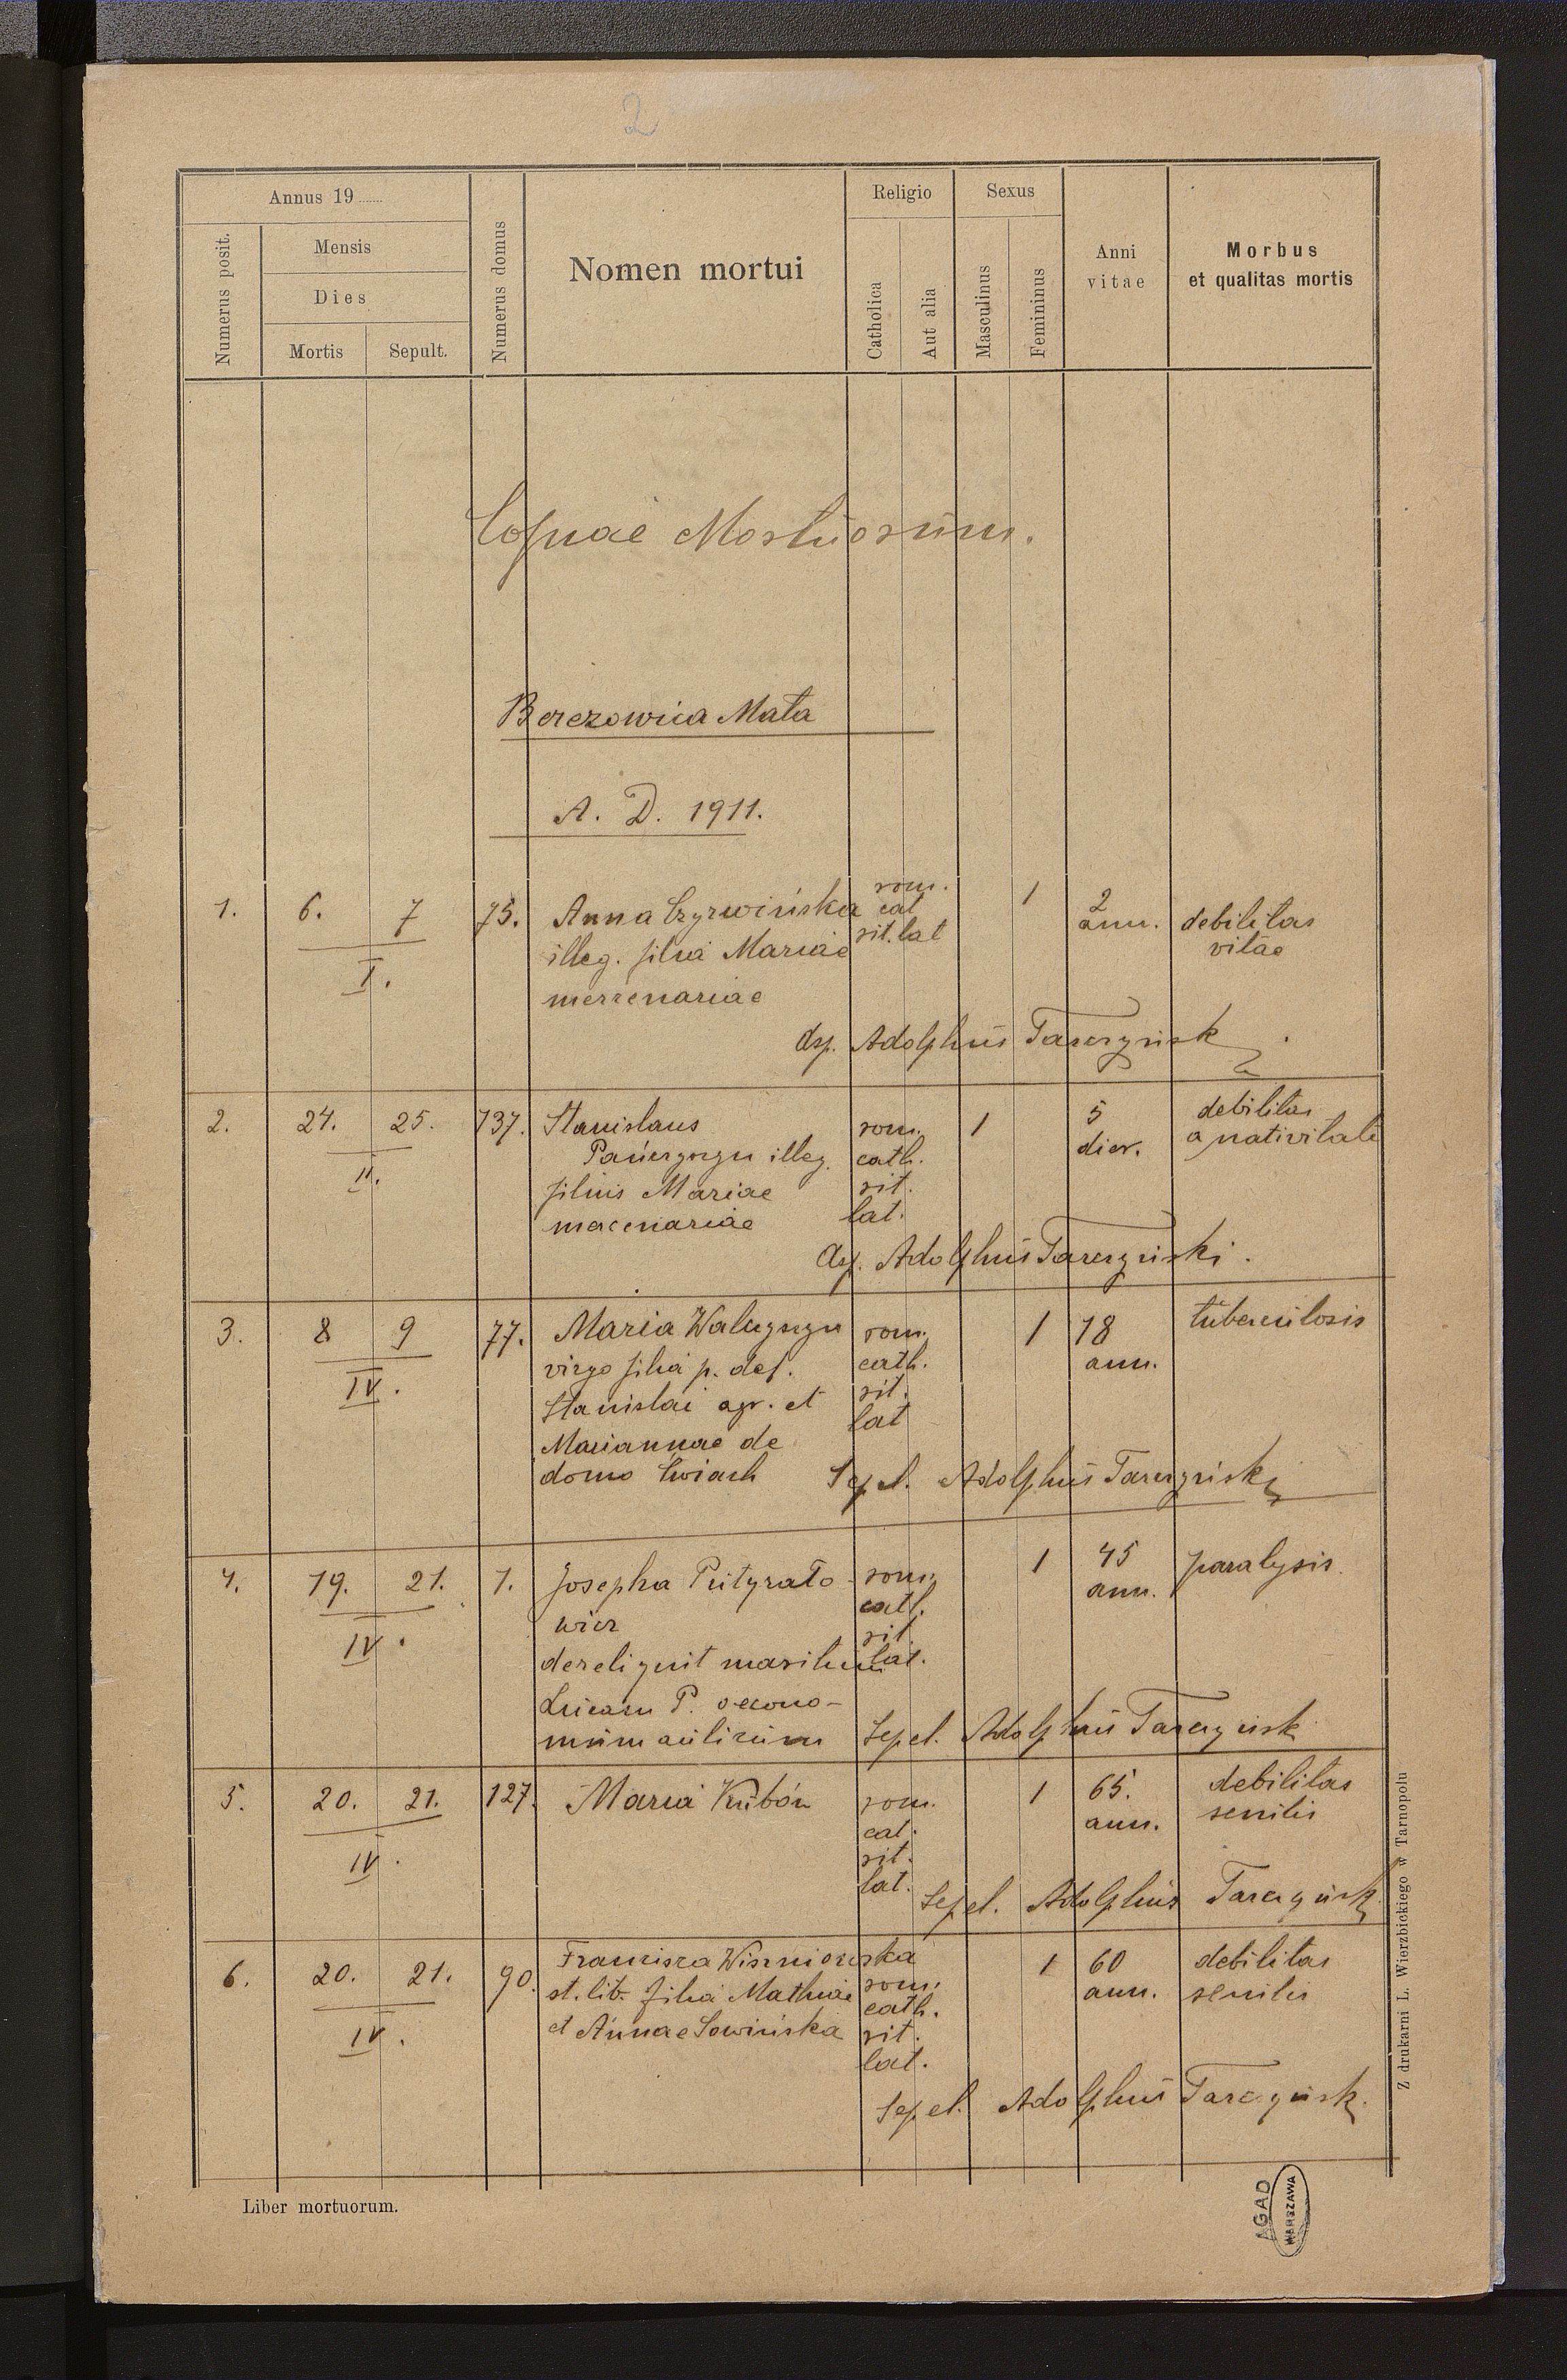 2
Annus 19......
Numerus posit.
Mensis
Dies
Mortis
Sepult.
Numerus domus
Nomen mortui
Religio
Catholica
Aut alia
Sexus
Masculinus
Femininus
Anni
vitae
Morbus
et qualitas mortis
Copiae Mortuorum.
Berezowica Mała
A. D. 1911.
1. 6. 7 I. 75.
Anna Czyrwińska
illeg. filia Mariae
mercenariae
rom.
cat
rit. lat
1
2
ann.
debilitas
vitae
Adolphus
2. 24. 25. II. 137.
Stanislaus
illeg.
filius Mariae
mercenariae
rom.
cath.
rit.
lat.
1
5
dier.
debilitas
a nativitate
Adolphus
3. 8 9 IV. 77.
Maria
virgo filia p. def.
Stanislai agr. et
Mariannae de
domo
rom.
cath.
rit.
lat
1
18
ann.
tuberculosis
Sepel. Adolphus
4. 19. 21. IV. 1.
Josepha
wicz
dereliquit maritum
Lucam P. oecono-
mum aulicum
rom.
cath.
rit.
lat.
1
45
ann.
paralysis.
Sepel. Adolphus
5. 20. 21. IV. 127.
Maria Kubów
rom.
cat.
rit.
lat.
1
65.
ann.
debilitas
senilis
Sepel. Adolphus
6. 20. 21. IV. 90.
Francisca Wiszniowska
st. lib. filia Mathiae
et Annae Sowińska
rom.
cath.
rit.
lat.
1
60
ann.
debilitas
senilis
Sepel. Adolphus
Liber mortuorum.
Z drukarni L. Wierzbickiego w Tarnopolu
AGAD
WARSZAWA